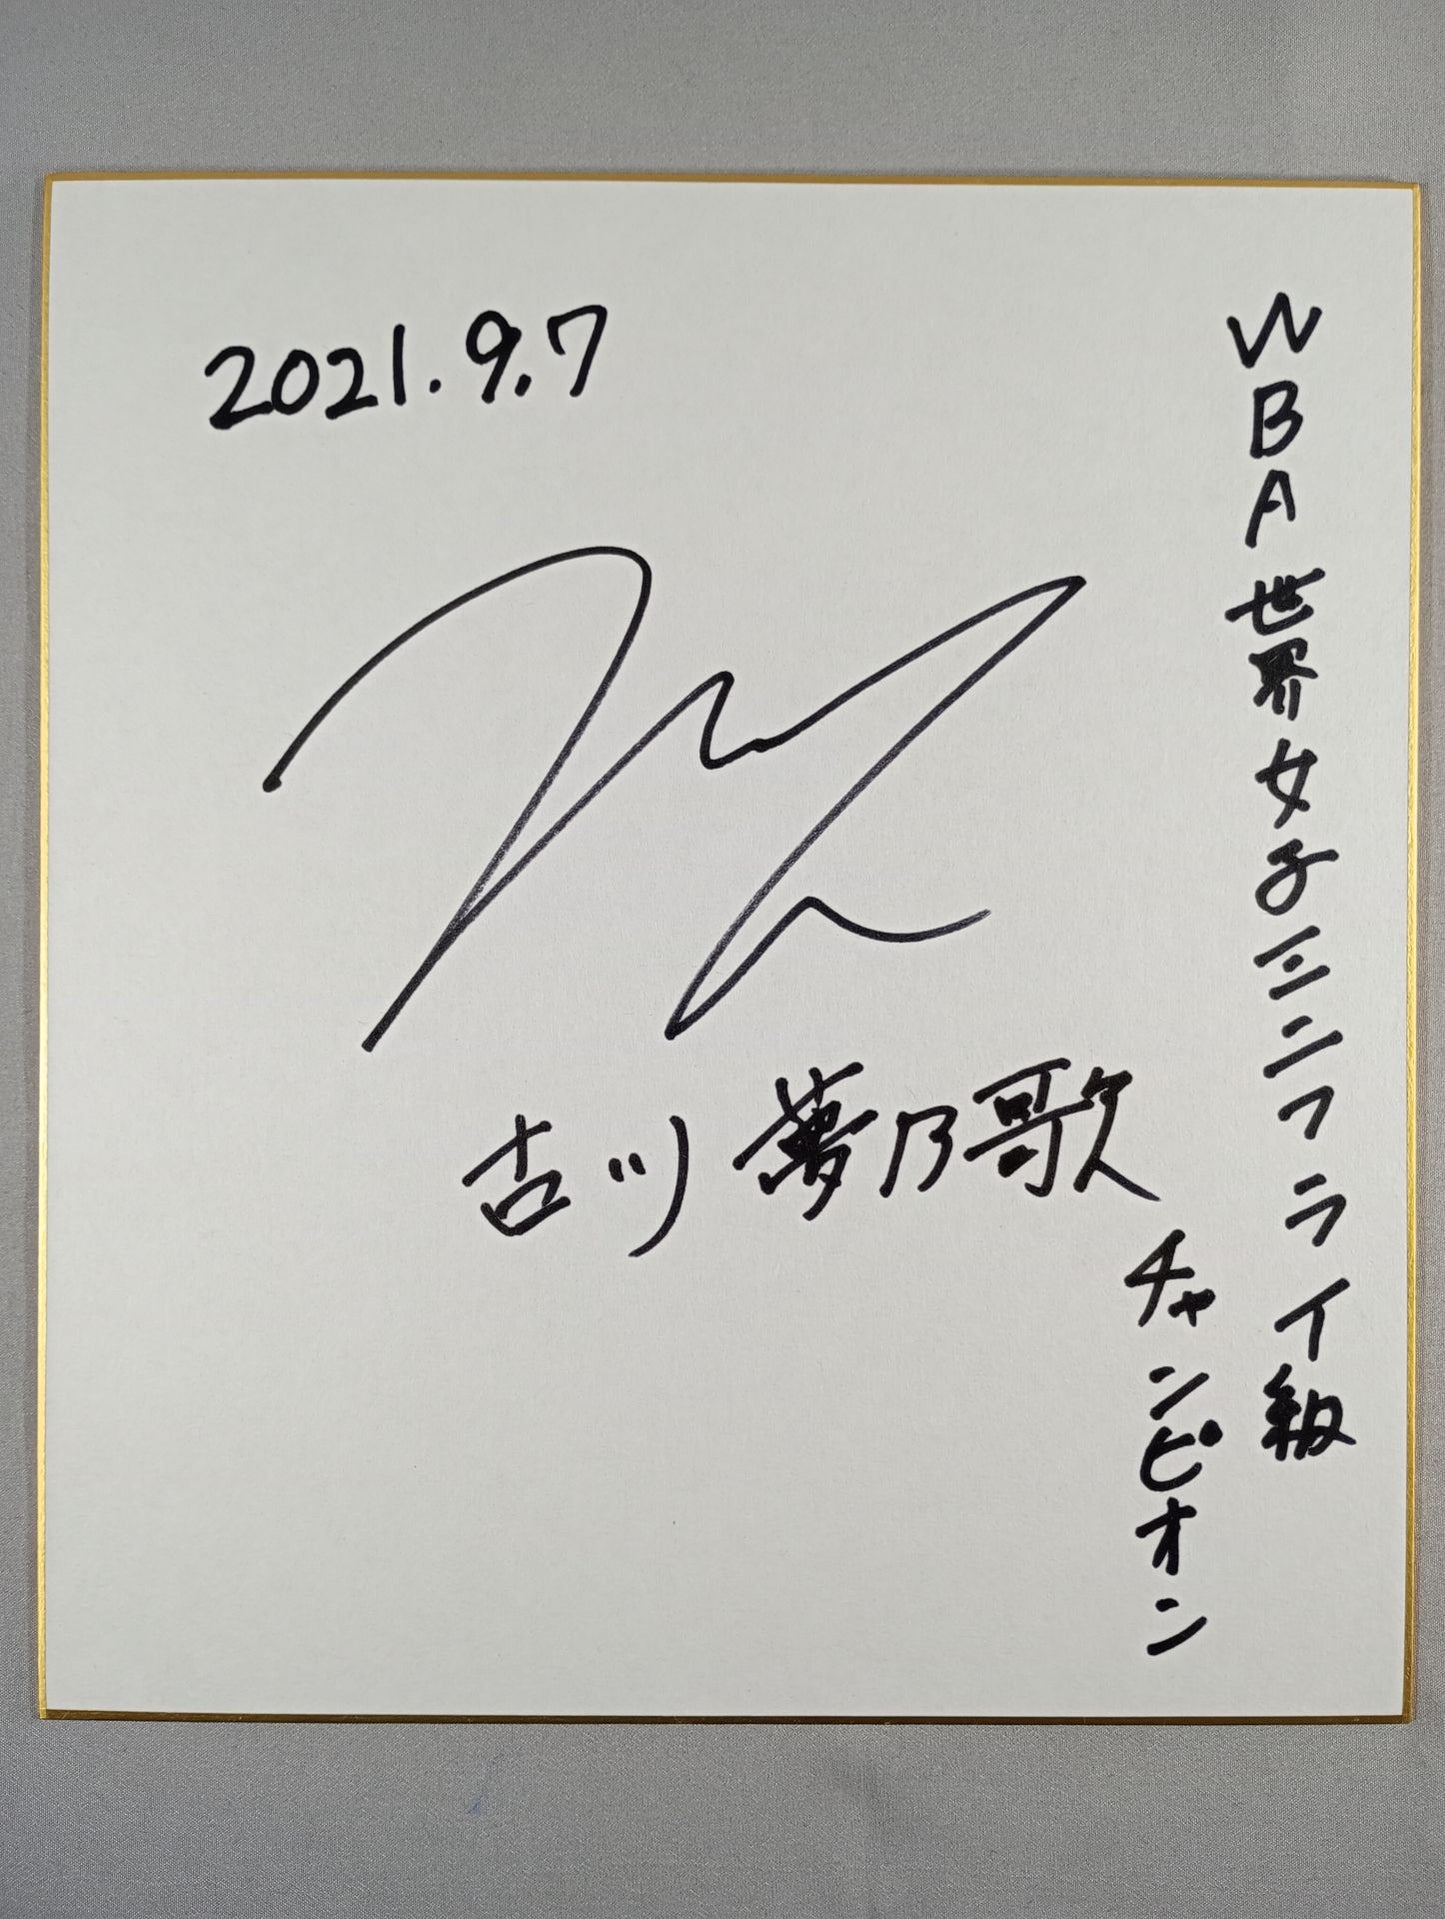 WBA世界女子ミニフライ級
チャンピオン
2021.9.7
吉川夢乃歌